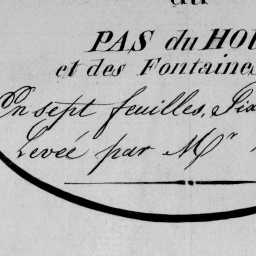 du
PAS du HOU
et des Fontaines
En sept feuilles,
Levée par Mr